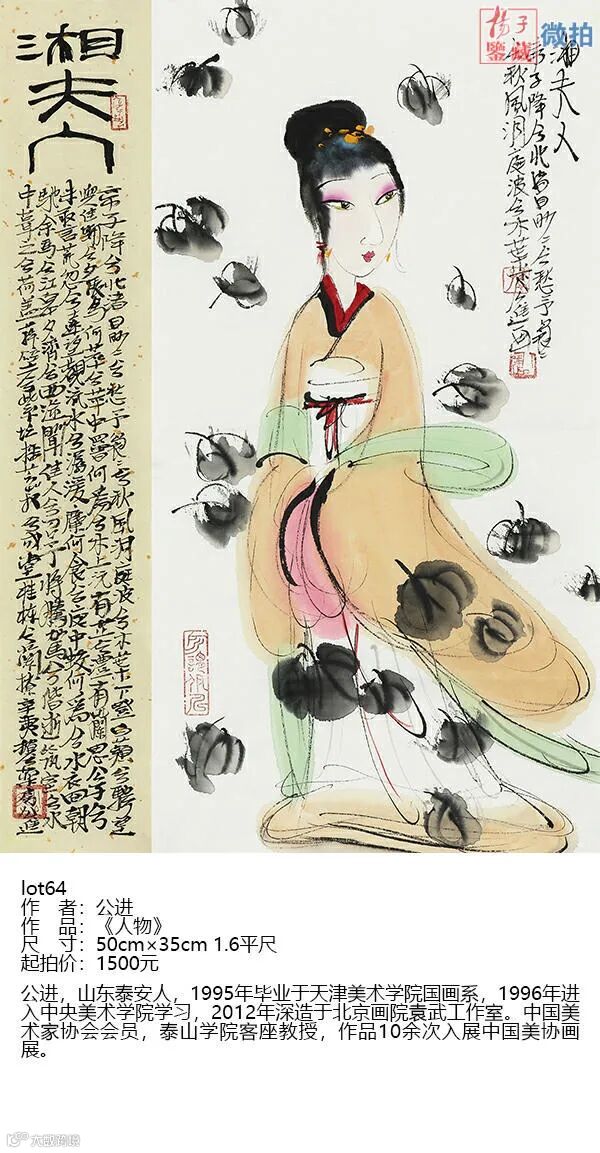 湘夫人
帝子降兮北渚目眇〻兮愁予袅〻兮秋风洞庭波兮木葉下登白薠兮骋望
與佳期兮夕張鳥何萃兮苹中罾何為兮木上沅有芷兮澧有蘭思公子兮
未敢言荒忽兮遠望觀流水兮潺湲麋何食兮庭中蛟何為兮水裔朝
馳余馬兮江皋夕濟兮西澨聞佳人兮召予將騰駕兮偕逝筑室兮水
中葺之兮荷盖荪壁兮紫坛播芳椒兮成堂桂栋兮
辛夷楣
公進
湘夫人
帝子降兮北渚目眇〻兮愁予袅〻
兮秋風洞庭波兮木葉
公進画
揚子
鑒藏
微拍
lot64
作 者：公进
作 品：《人物》
尺 寸：50cm×35cm 1.6平尺
起拍价：1500元
公进，山东泰安人，1995年毕业于天津美术学院国画系，1996年进
入中央美术学院学习，2012年深造于北京画院袁武工作室。中国美
术家协会会员，泰山学院客座教授，作品10余次入展中国美协画
展。